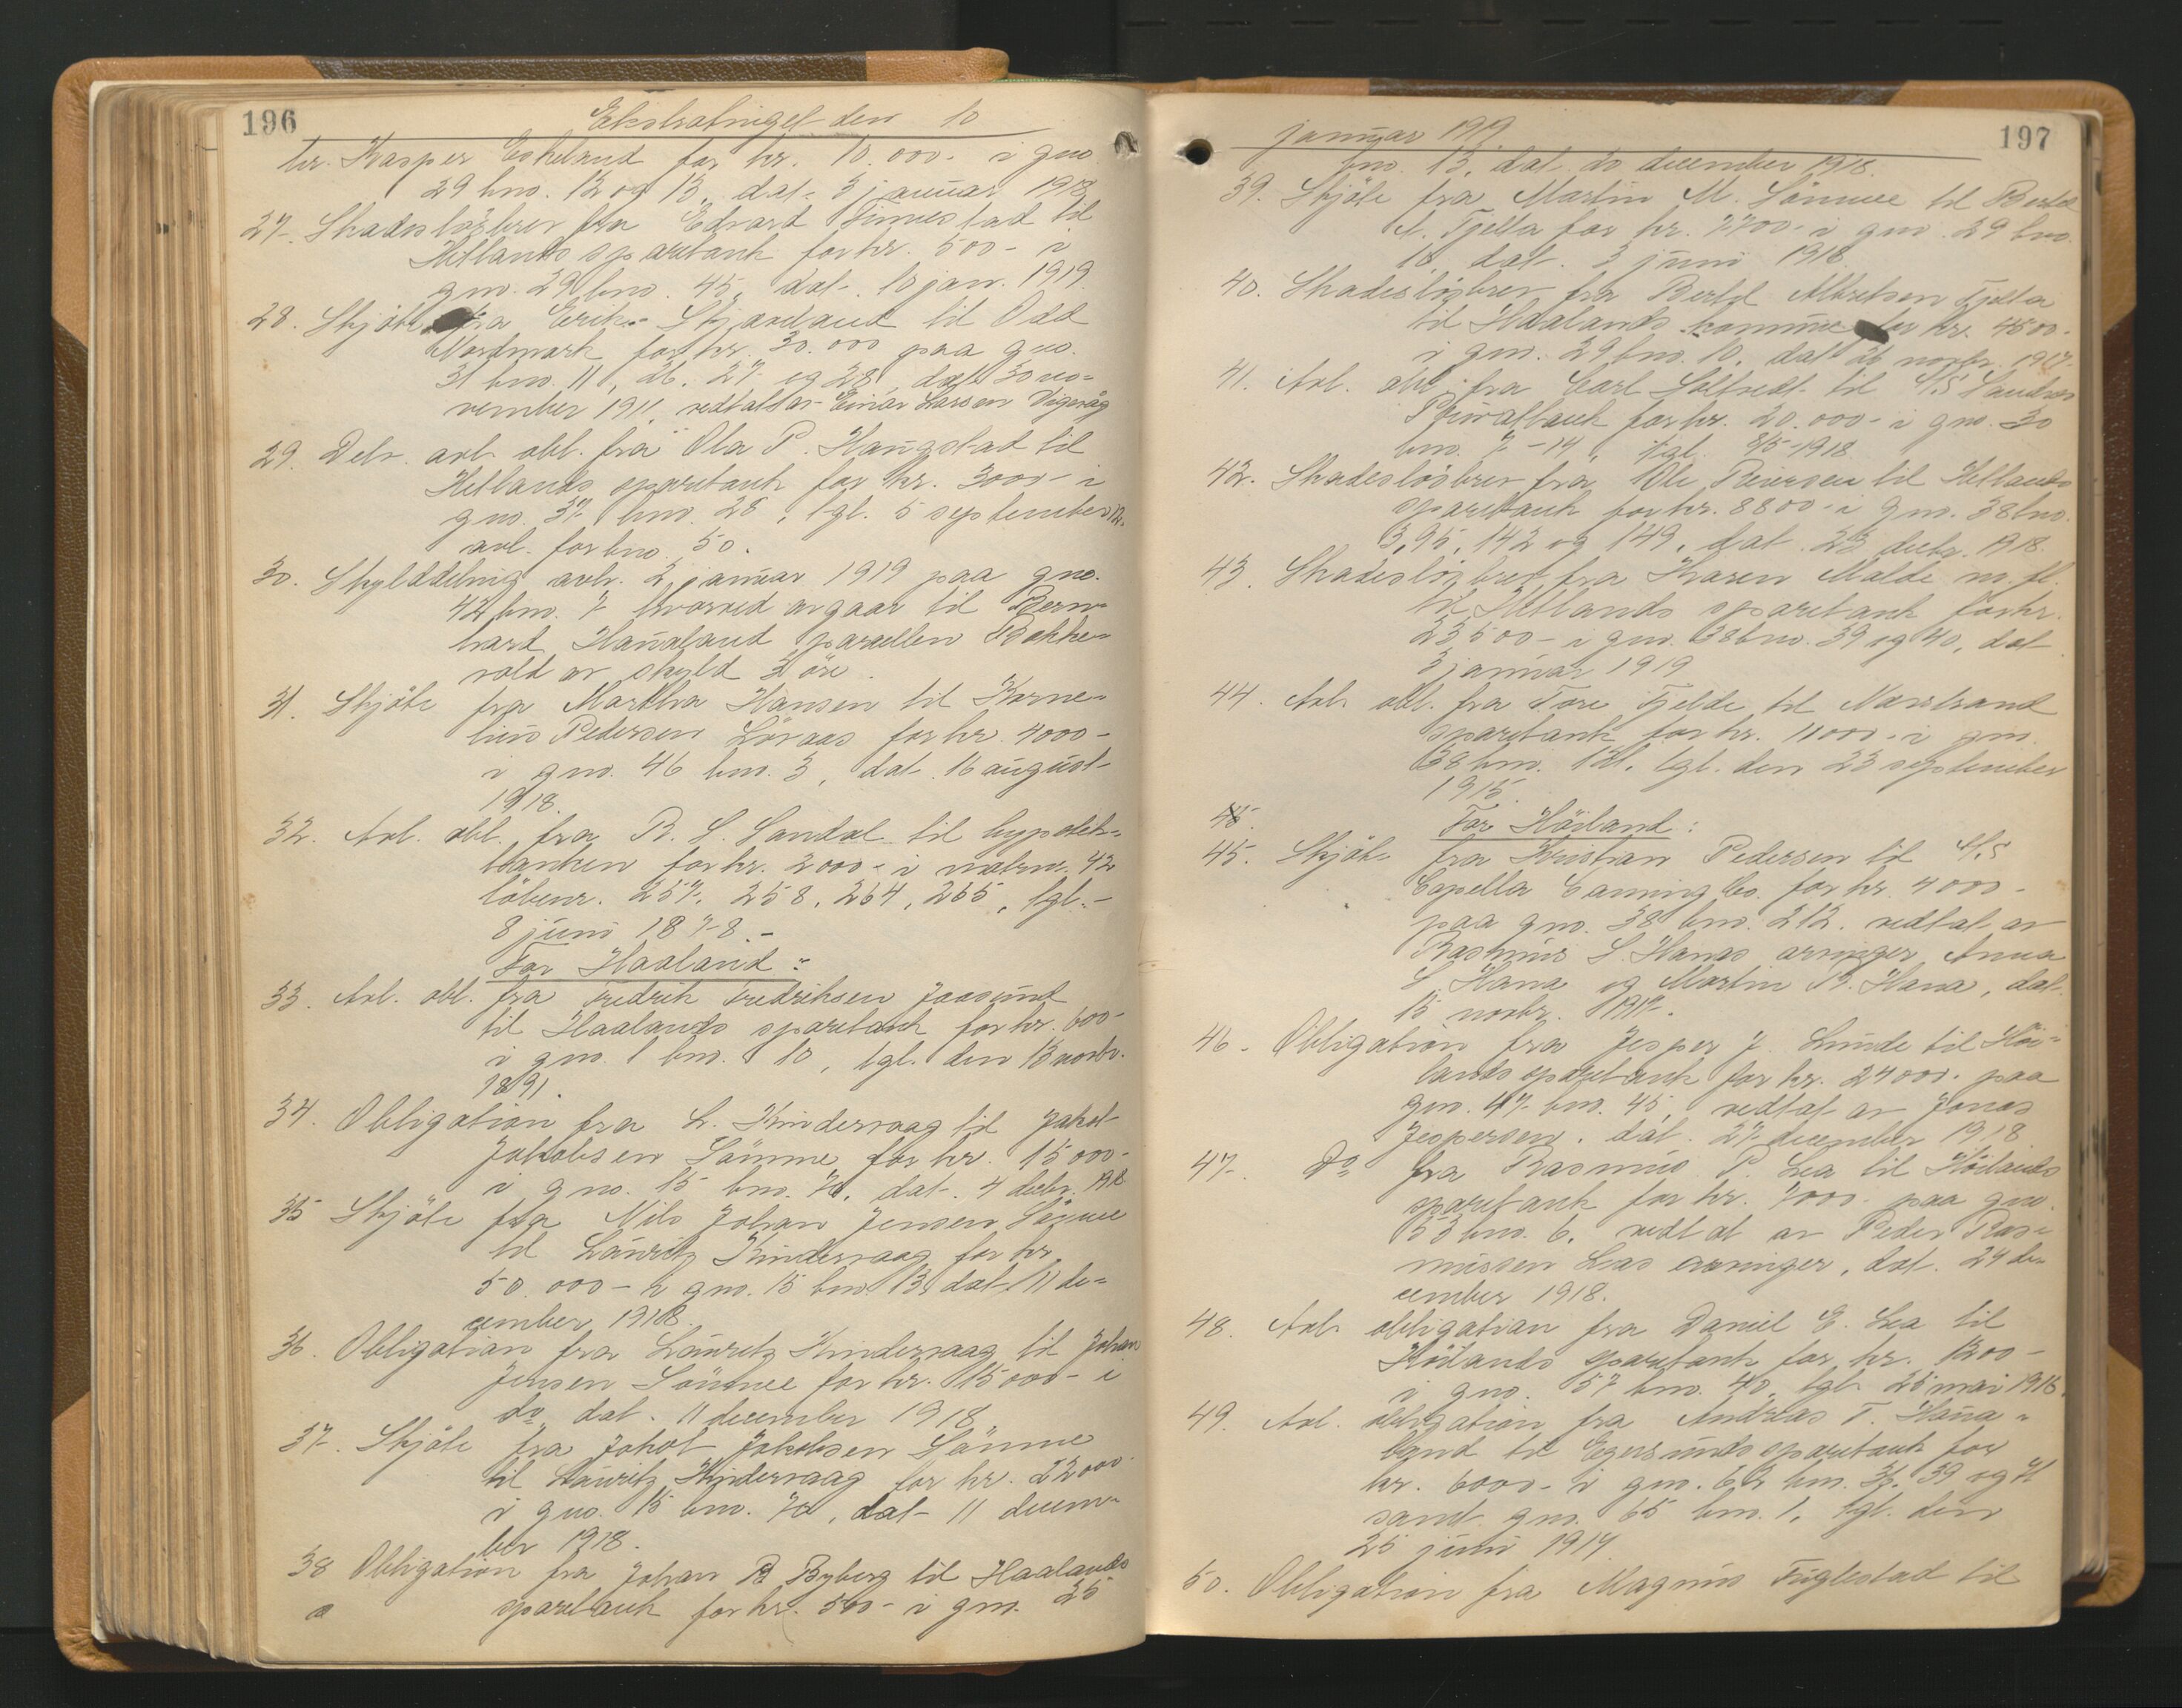 196
Ekstratinget den 10
hr. Kasper Eskeland for kr. 10.000- i gno.
29 bno. 12 og 13, dat. 3 januar 1918
27. Skadeslösbrev fra Edvard Finnestad til
Hetlands sparebank for kr. 500- i
gno. 29 bno. 45, dat. 10 jan. 1919.
28. Skjöte fra Erik Skjæveland til Odd
Nordmark for kr. 30.000 paa gno.
31 bno. 11, 26, 27 og 28, dat. 30 no-
vember 1911, vedtat av Einar Larsen
29. Delv. avl. obl. fra Ola P. Haugstad til
Hetlands sparebank for kr. 3000- i
gno. 37 bno. 28, tgl. 5 september
avl. for bno. 50.
30. Skylddeling avh. 2 januar 1919 paa gno.
42 bno. 7 hvorved avgaar til Bern-
hard Haualand parcellen Bakke-
vold av skyld 3 öre.
31. Skjöte fra Martha Hansen til Korne-
lius Pedersen Løvaas for kr. 4000-
i gno. 46 bno. 3, dat. 16 august
1918.
32. Avl. obl. fra B. S. Sandal til hypotek-
banken for kr. 2000- i matrnr. 42
löbenr. 257, 258, 264, 265, tgl.
8 juni 1878.-
For Haaland:
33. Avl. obl. fra Fredrik Fredriksen Joasund
til Haalands sparebank for kr. 600-
i gno. 1 bno. 10, tgl. den 13 novbr.
1891.
34. Obligation fra L. Kindervaag til Jakob
Jakobsen Sömme for kr. 15000-
i gno. 15 bno. 70, dat. 4 decbr. 1918
35 Skjöte fra Nils Johan Jensen Sömme
til Lauritz Kindervaag for kr.
50.000- i gno. 15 bno 13, dat. 11 de-
cember 1918.
36. Obligation fra Lauritz Kindervaag til Johan
Jensen Sömme for kr. 15000- i
do, dat. 11 december 1918
37. Skjöte fra Jakob Jakobsen Sömme
til Lauritz Kindervaag for kr. 22000
i gno. 15 bno. 70, dat. 11 decem-
ber 1918.
38 Obligation fra Johan B. Byberg til Haalands
sparebank for kr. 500- i gno. 25
januar 1919.
197
bno. 13, dat. do december 1918.
39. Skjöte fra Martin M. Sömme til Bertel
A. Tjelta for kr. 7700- i gno. 29 bno.
10, dat. 3 juni 1918
40. Skadeslösbrev fra Bertel Albretsen Tjelta
til Haalands kommune for kr. 4500-
i gno. 29 bno. 10, dat. 26 novbr. 1917.
41. Avl. obl. fra Carl Soltvedt til A.S Sandnes
Privatbank for kr. 20.000- i gno. 30
bno. 7-14, tgl. 8/5-1918.
42. Skadeslösbrev fra Ole Reiersen til Hetlands
sparebank for kr. 8800- i gno. 38 bno.
3, 95, 142 og 149, dat. 23 decbr. 1918.
43. Skadeslösbrev fra Karen Malde m. fl.
til Hetlands sparebank for kr.
23500- i gno. 38 bno. 39 og 40, dat.
3 januar 1919
44. Avl. obl. fra Tore Tjelde til Navstrand
sparebank for kr. 11000- i gno.
38 bno. 121, tgl. den 23 september
1915.
45. For Höiland:
45. Skjöte fra Kristian Pedersen til A/S
Capella Canning Co. for kr. 4000-
paa gno. 38 bno. 212, vedtat av
Rasmus S. Hanas arvinger Anna
S. Hana og Martin R. Hana, dat.
15 novbr. 1917.
46. Obligation fra Jesper J. Lunde til Höi-
lands sparebank for kr. 24000- paa
gno. 47 bno. 45, vedtat av Jonas
Jespersen, dat. 27 december 1918
47. Do fra Rasmus P. Lea til Höilands
sparebank for kr. 7000- paa gno.
53 bno. 6, vedtat av Peder Ras-
mussen Leas arvinger, dat. 24 de-
cember 1918.
48. Avl. obligation fra Daniel E. Lea til
Höilands sparebank for kr. 1200-
i gno. 57 bno. 40, tgl. 25 mai 1916.
49. Avl. obligation fra Andreas T. Haua-
land til Egersunds sparebank for
kr. 6000- i gno. 62 bno. 37, 39 og 41
samt gno. 65 bno. 1, tgl. den
25 juni 1914
50. Obligation fra Magnus Fuglestad til